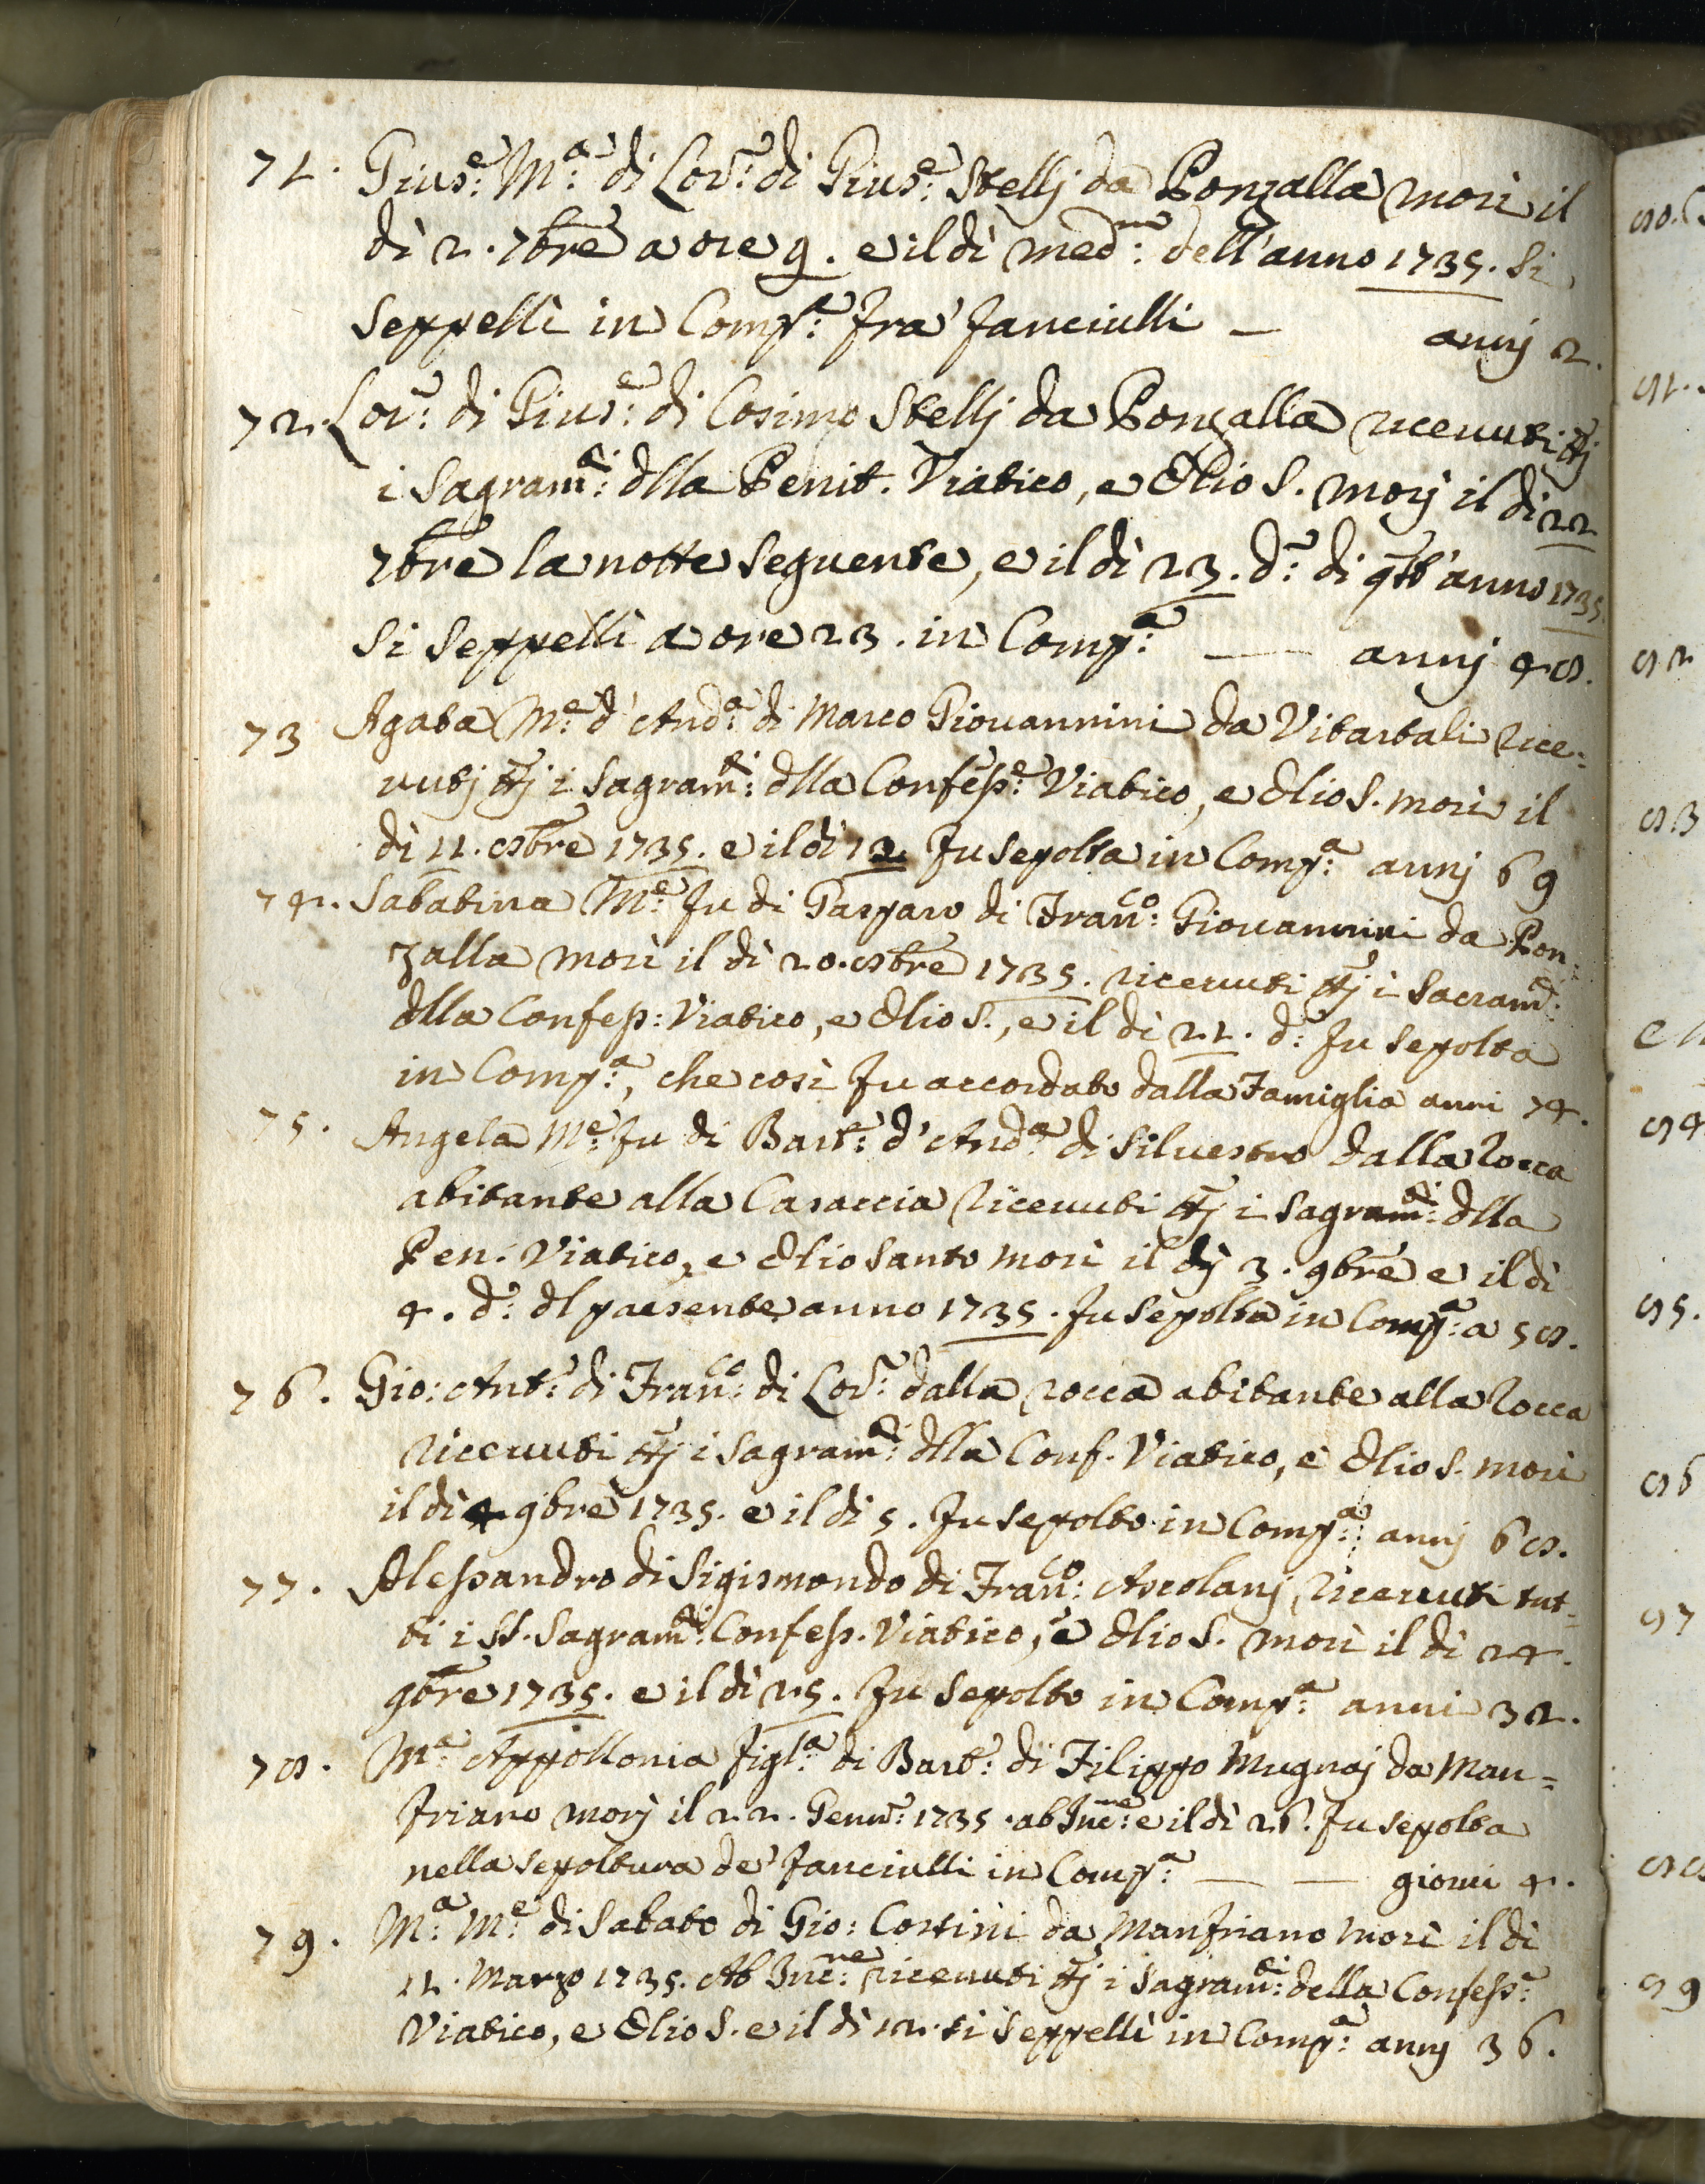 71. Gius.e M.a di Lor.o di Gius.e Stellj da Ronzalla morì il
dì 2. 7bre a ore 9. e il dì med.mo dell'anno 1735. si
seppellì in Comp.a fra fanciulli — annj 2.
72. Lor.o di Gius.e di Cosimo Stellj da Ronzalla riceuuti ttj
i Sagram.ti dlla Penit. Viatico, e Olio S. morj il dì 22
7bre la notte seguente, e il dì 23. d.o di qto anno 1735
si seppellì a ore 23. in Comp.a — annj 48.
73 Agata M.e d'And.a di Marco Giouannini da Vitartali rice=
uutj ttj i Sagram.ti dlla Confess.e Viatico, e Olio S. morì il
dì 11. 8bre 1735. e il dì 12. fu sepolta in Comp.a annj 69
74. Sabatina M.e fu di Gasparo di Fran.co Giouannini da Ron=
zalla morì il dì 20. 8bre 1735. riceuuti ttj i Sacram.ti
dlla Confess: Viatico, e Olio S., e il dì 21. d.o fu sepolta
in Comp.a, che così fu accordato dalla Famiglia anni 74.
75. Angela M.e fu di Bart.o d'And.a di Siluestro dalla Rocca
abitante alla Casaccia riceuuti ttj i Sagram.ti dlla
Pen. Viatico, e Olio Santo morì il dj 3. 9bre e il dì
4. d.o dl presente anno 1735. fu sepolta in Comp.a a 58.
76. Gio: Ant.o di Fran.co di Lor.o dalla rocca abitante alla Rocca
riceuuti ttj i Sagram.ti dlla Conf. Viatico, e Olio S. morì
il dì 4 9bre 1735. e il dì 5. fu sepolto in Comp.a annj 68.
77. Alessandro di Sigismondo di Fran.co Ascolanj, riceuuti tut=
ti i SS. Sagram.ti Confess. Viatico, e Olio S. morì il dì 24.
9bre 1735. e il dì 25. fu sepolto in Comp.a anni 32.
78. M.a Appollonia figl.a di Bart.o di Filippo Mugnaj da Man=
friano morj il 22. Genn.o 1735. ab Inc.ne e il dì 26. fu sepolta
nella sepoltura de' fanciulli in Comp.a — — giorni 4.
79. M.a M.e di Sabato di Gio: Cortini da Manfriano morì il dì
11. Marzo 1735. Ab Inc.ne riceuuti ttj i Sagram.ti della Confess.e
Viatico, e Olio S. e il dì 12. si seppellì in Comp.a annj 36.
80.
81.
82
83
84
85.
86
87
88
89